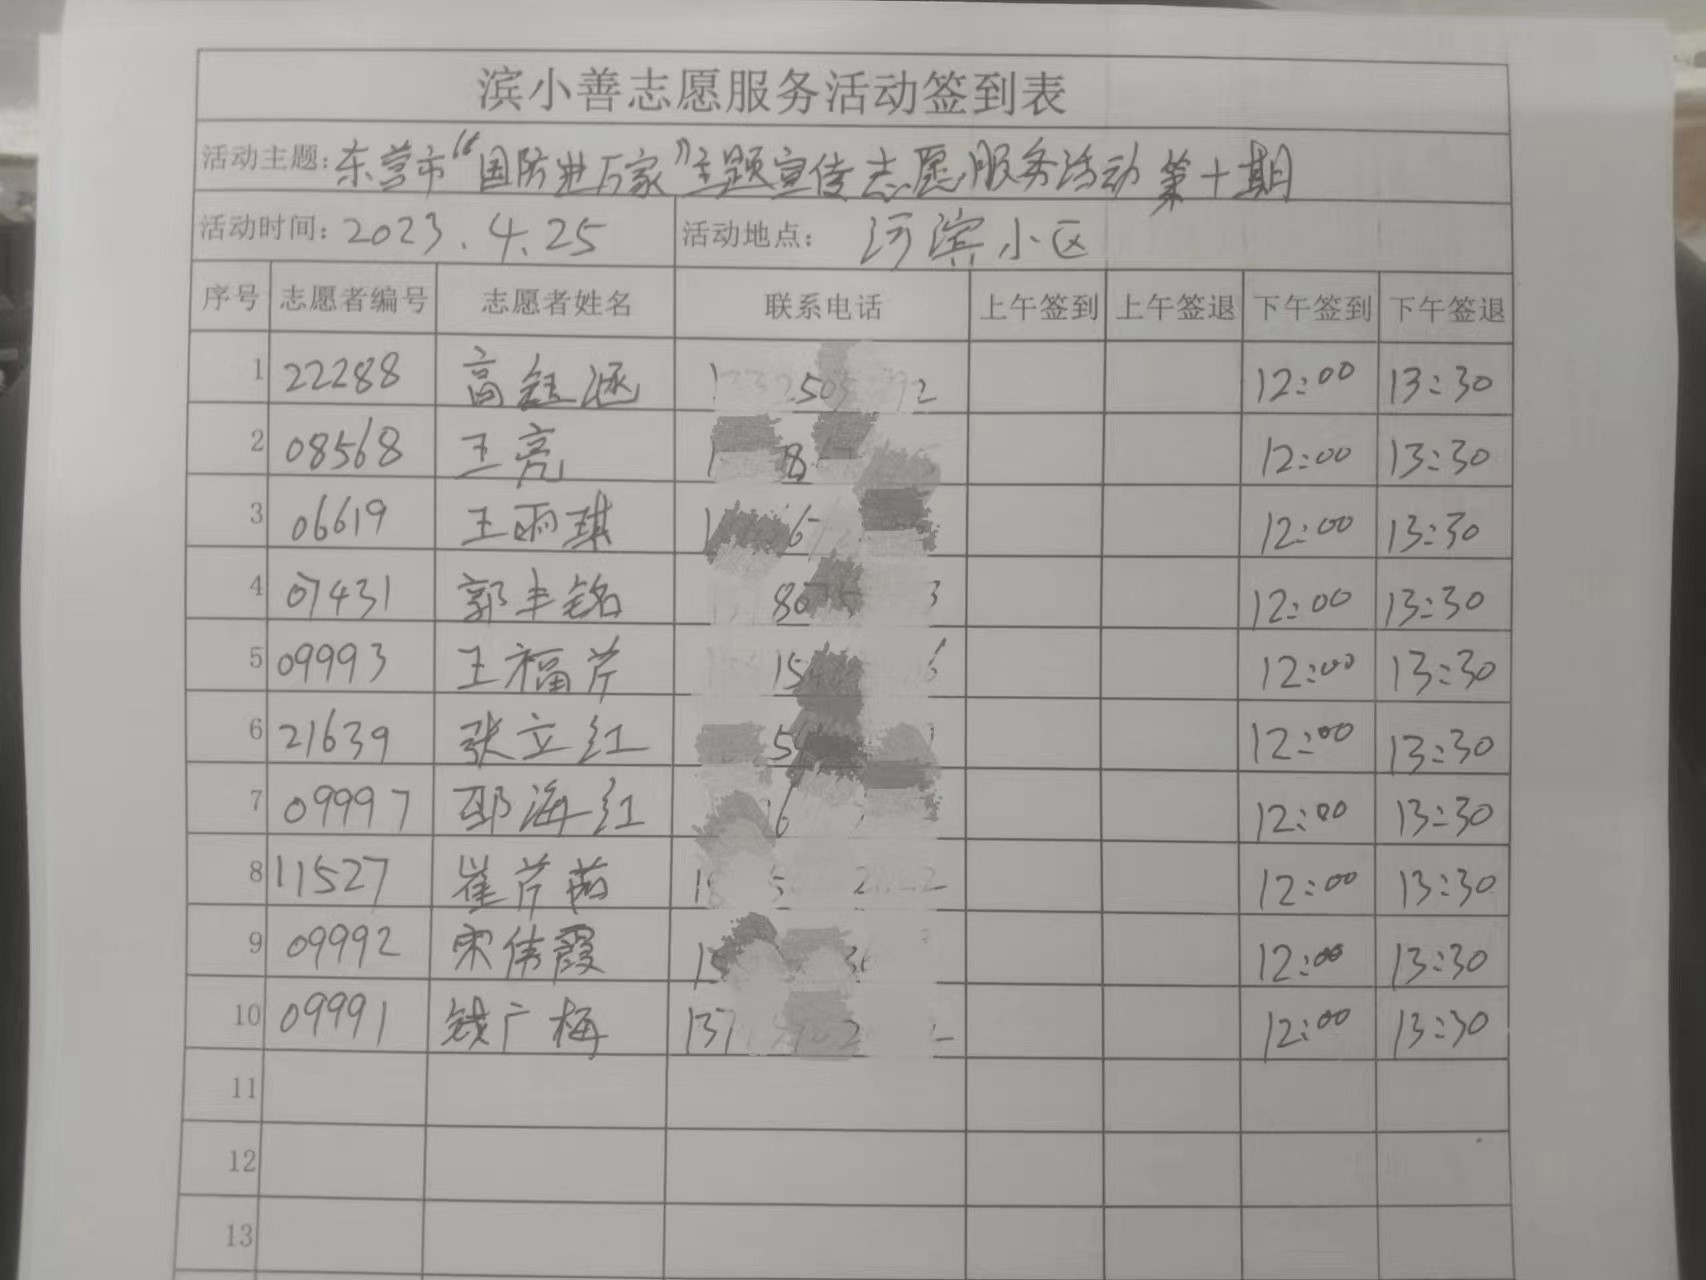 滨小善志愿服务活动签到表
活动主题：东营市“国防进万家”主题宣传志愿服务活动第十期
活动时间：2023.4.25 活动地点：河滨小区
序号 志愿者编号 志愿者姓名 联系电话 上午签到 上午签退 下午签到 下午签退
1 22288 高钰涵 12:00 13:30
2 08568 王亮 12:00 13:30
3 06619 王雨琪 12:00 13:30
4 07431 郭丰铭 12:00 13:30
5 09993 王福芹 12:00 13:30
6 21639 张立红 12:00 13:30
7 09997 邵海红 12:00 13:30
8 11527 崔芹 12:00 13:30
9 09992 宋伟霞 12:00 13:30
10 09991 钱广梅 12:00 13:30
11
12
13